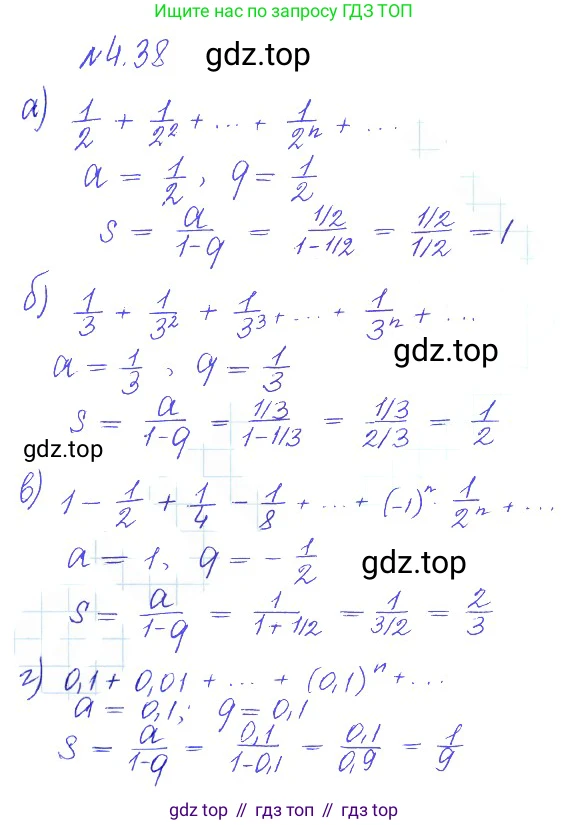 Ищите нас по запросу ГДЗ ТОП
№4.38 gdz.top
а) 1/2 + 1/2² + ... + 1/2ⁿ + ...
a = 1/2, q = 1/2
S = a/(1-q) = (1/2)/(1-1/2) = (1/2)/(1/2) = 1
б) 1/3 + 1/3² + 1/3³ + ... + 1/3ⁿ + ...
gdz.top
a = 1/3, q = 1/3
S = a/(1-q) = (1/3)/(1-1/3) = (1/3)/(2/3) = 1/2
gdz.top
в) 1 - 1/2 + 1/4 - 1/8 + ... + (-1)ⁿ · 1/2ⁿ + ...
a = 1, q = -1/2 gdz.top
S = a/(1-q) = 1/(1+1/2) = 1/(3/2) = 2/3
г) 0,1 + 0,01 + ... + (0,1)ⁿ + ...
a = 0,1; q = 0,1
S = a/(1-q) = 0,1/(1-0,1) = 0,1/0,9 = 1/9
gdz top // гдз топ // гдз top